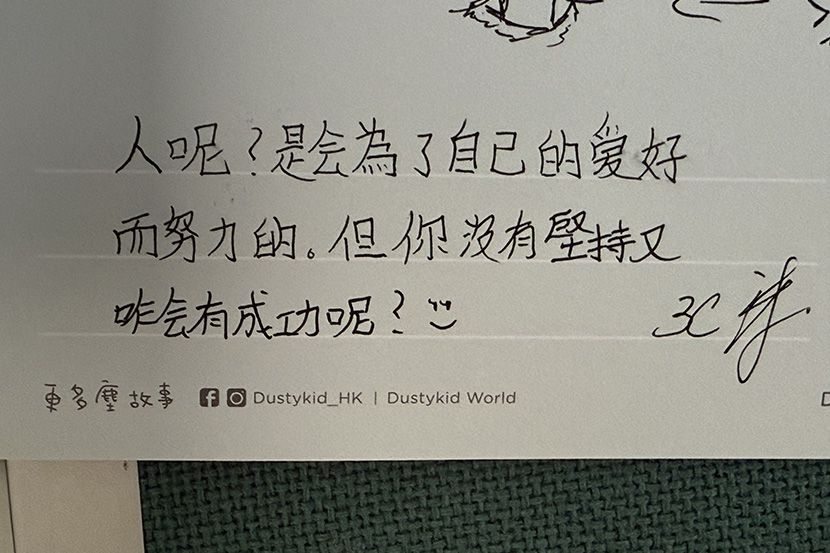 人呢？是会為了自己的爱好
而努力的。但你沒有堅持又
咋会有成功呢？
3C
更多塵故事 Dustykid_HK | Dustykid World